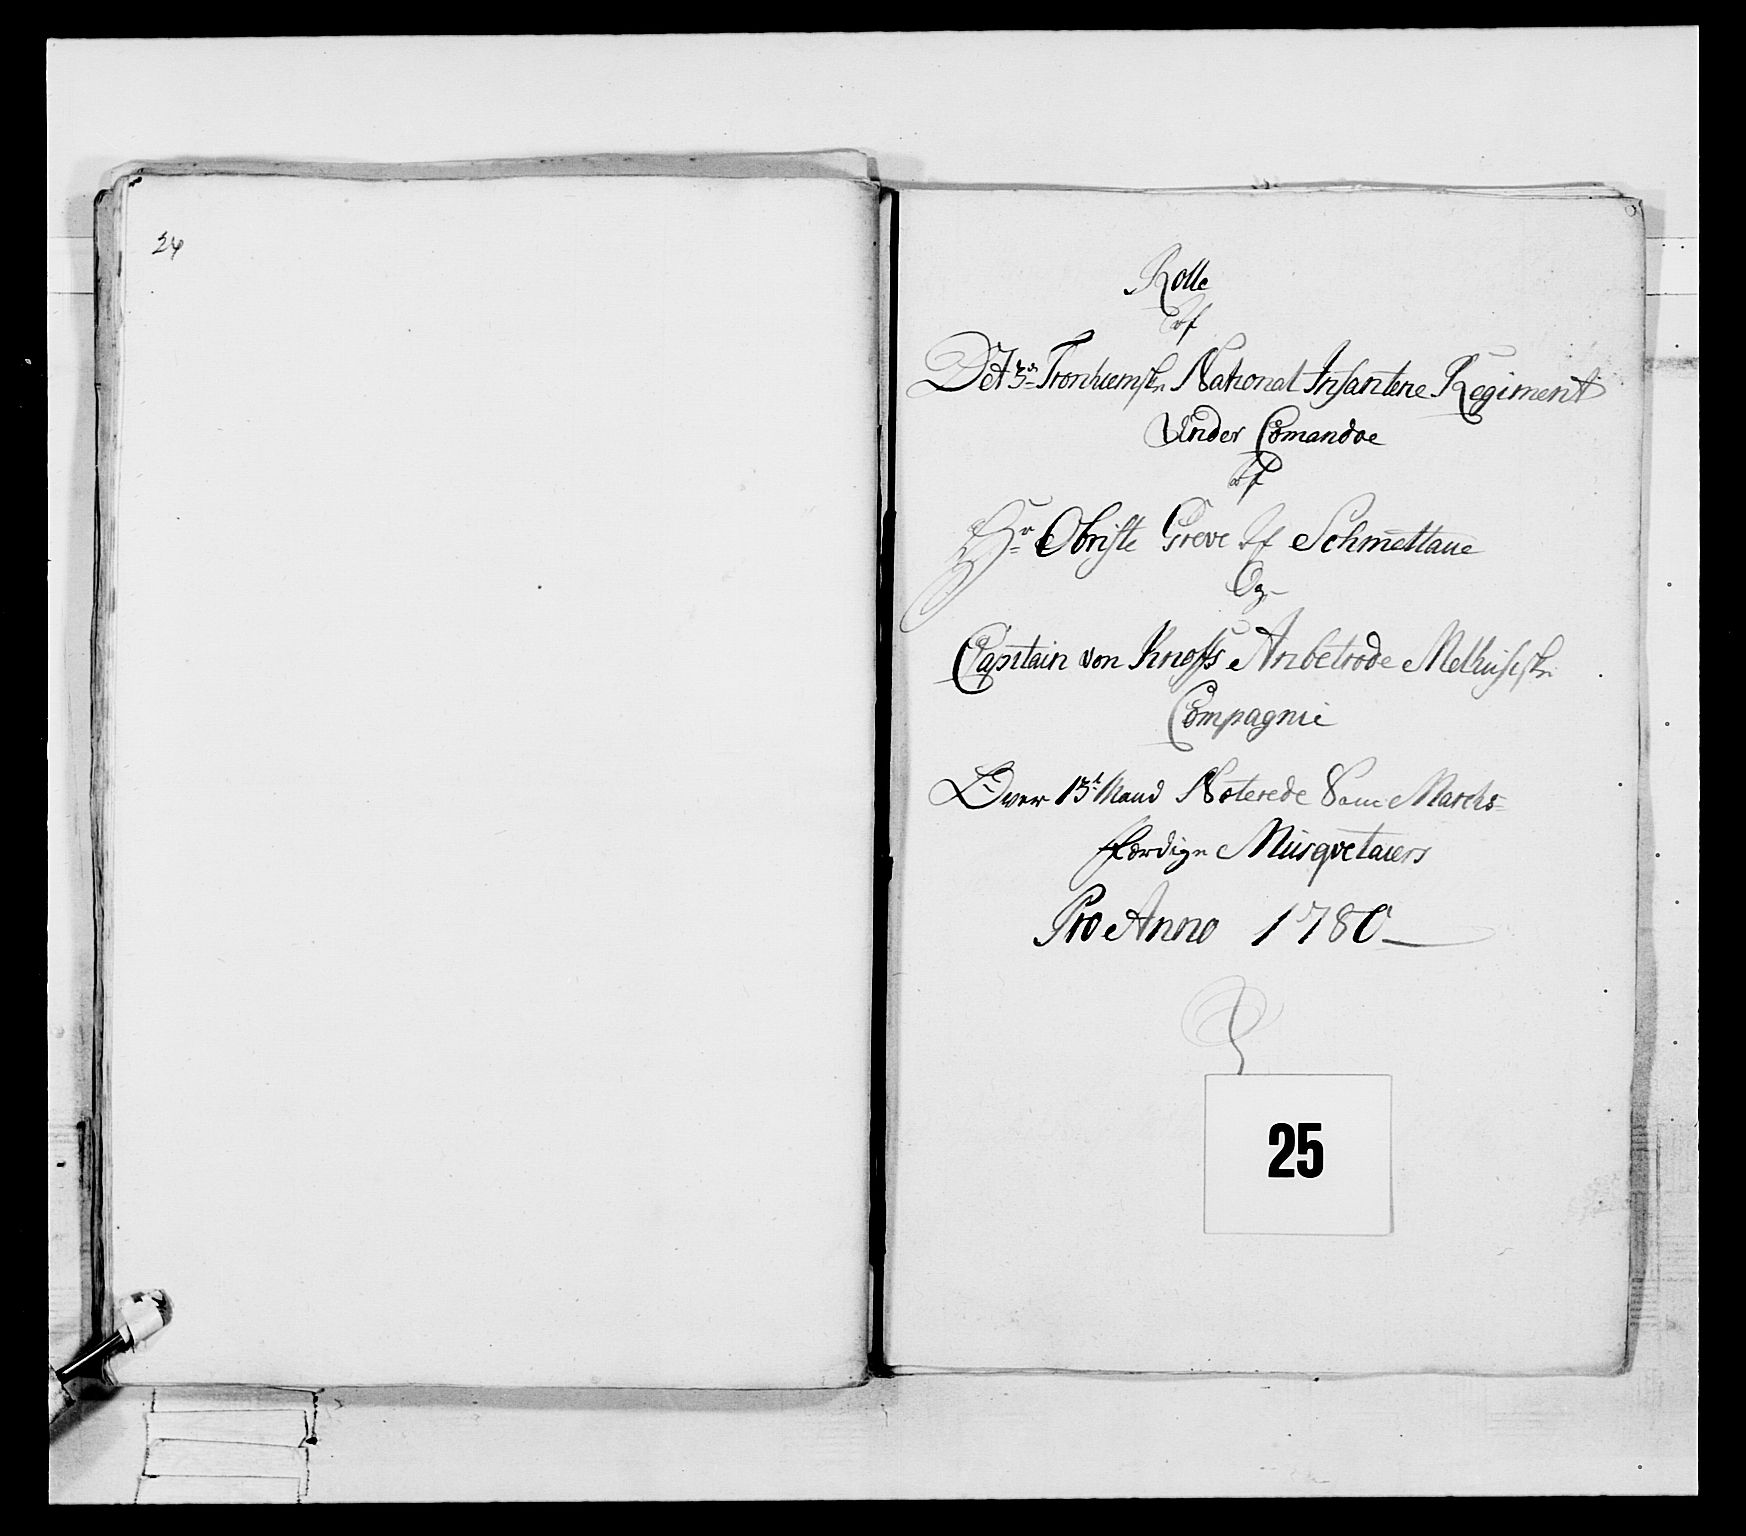 24
Rolle
Af
Det 3de Tronhiemske National Infanterie Regiment
Under Comandoe
Af
Hr Obriste Greve Af Schmettaue
Og
Capitain von Knoffs Anbetrode Melhusiske
Compagnie
Over Mand Noterede Som Marchs=
færdige Musqvetaiers
Pro Anno 1780
25